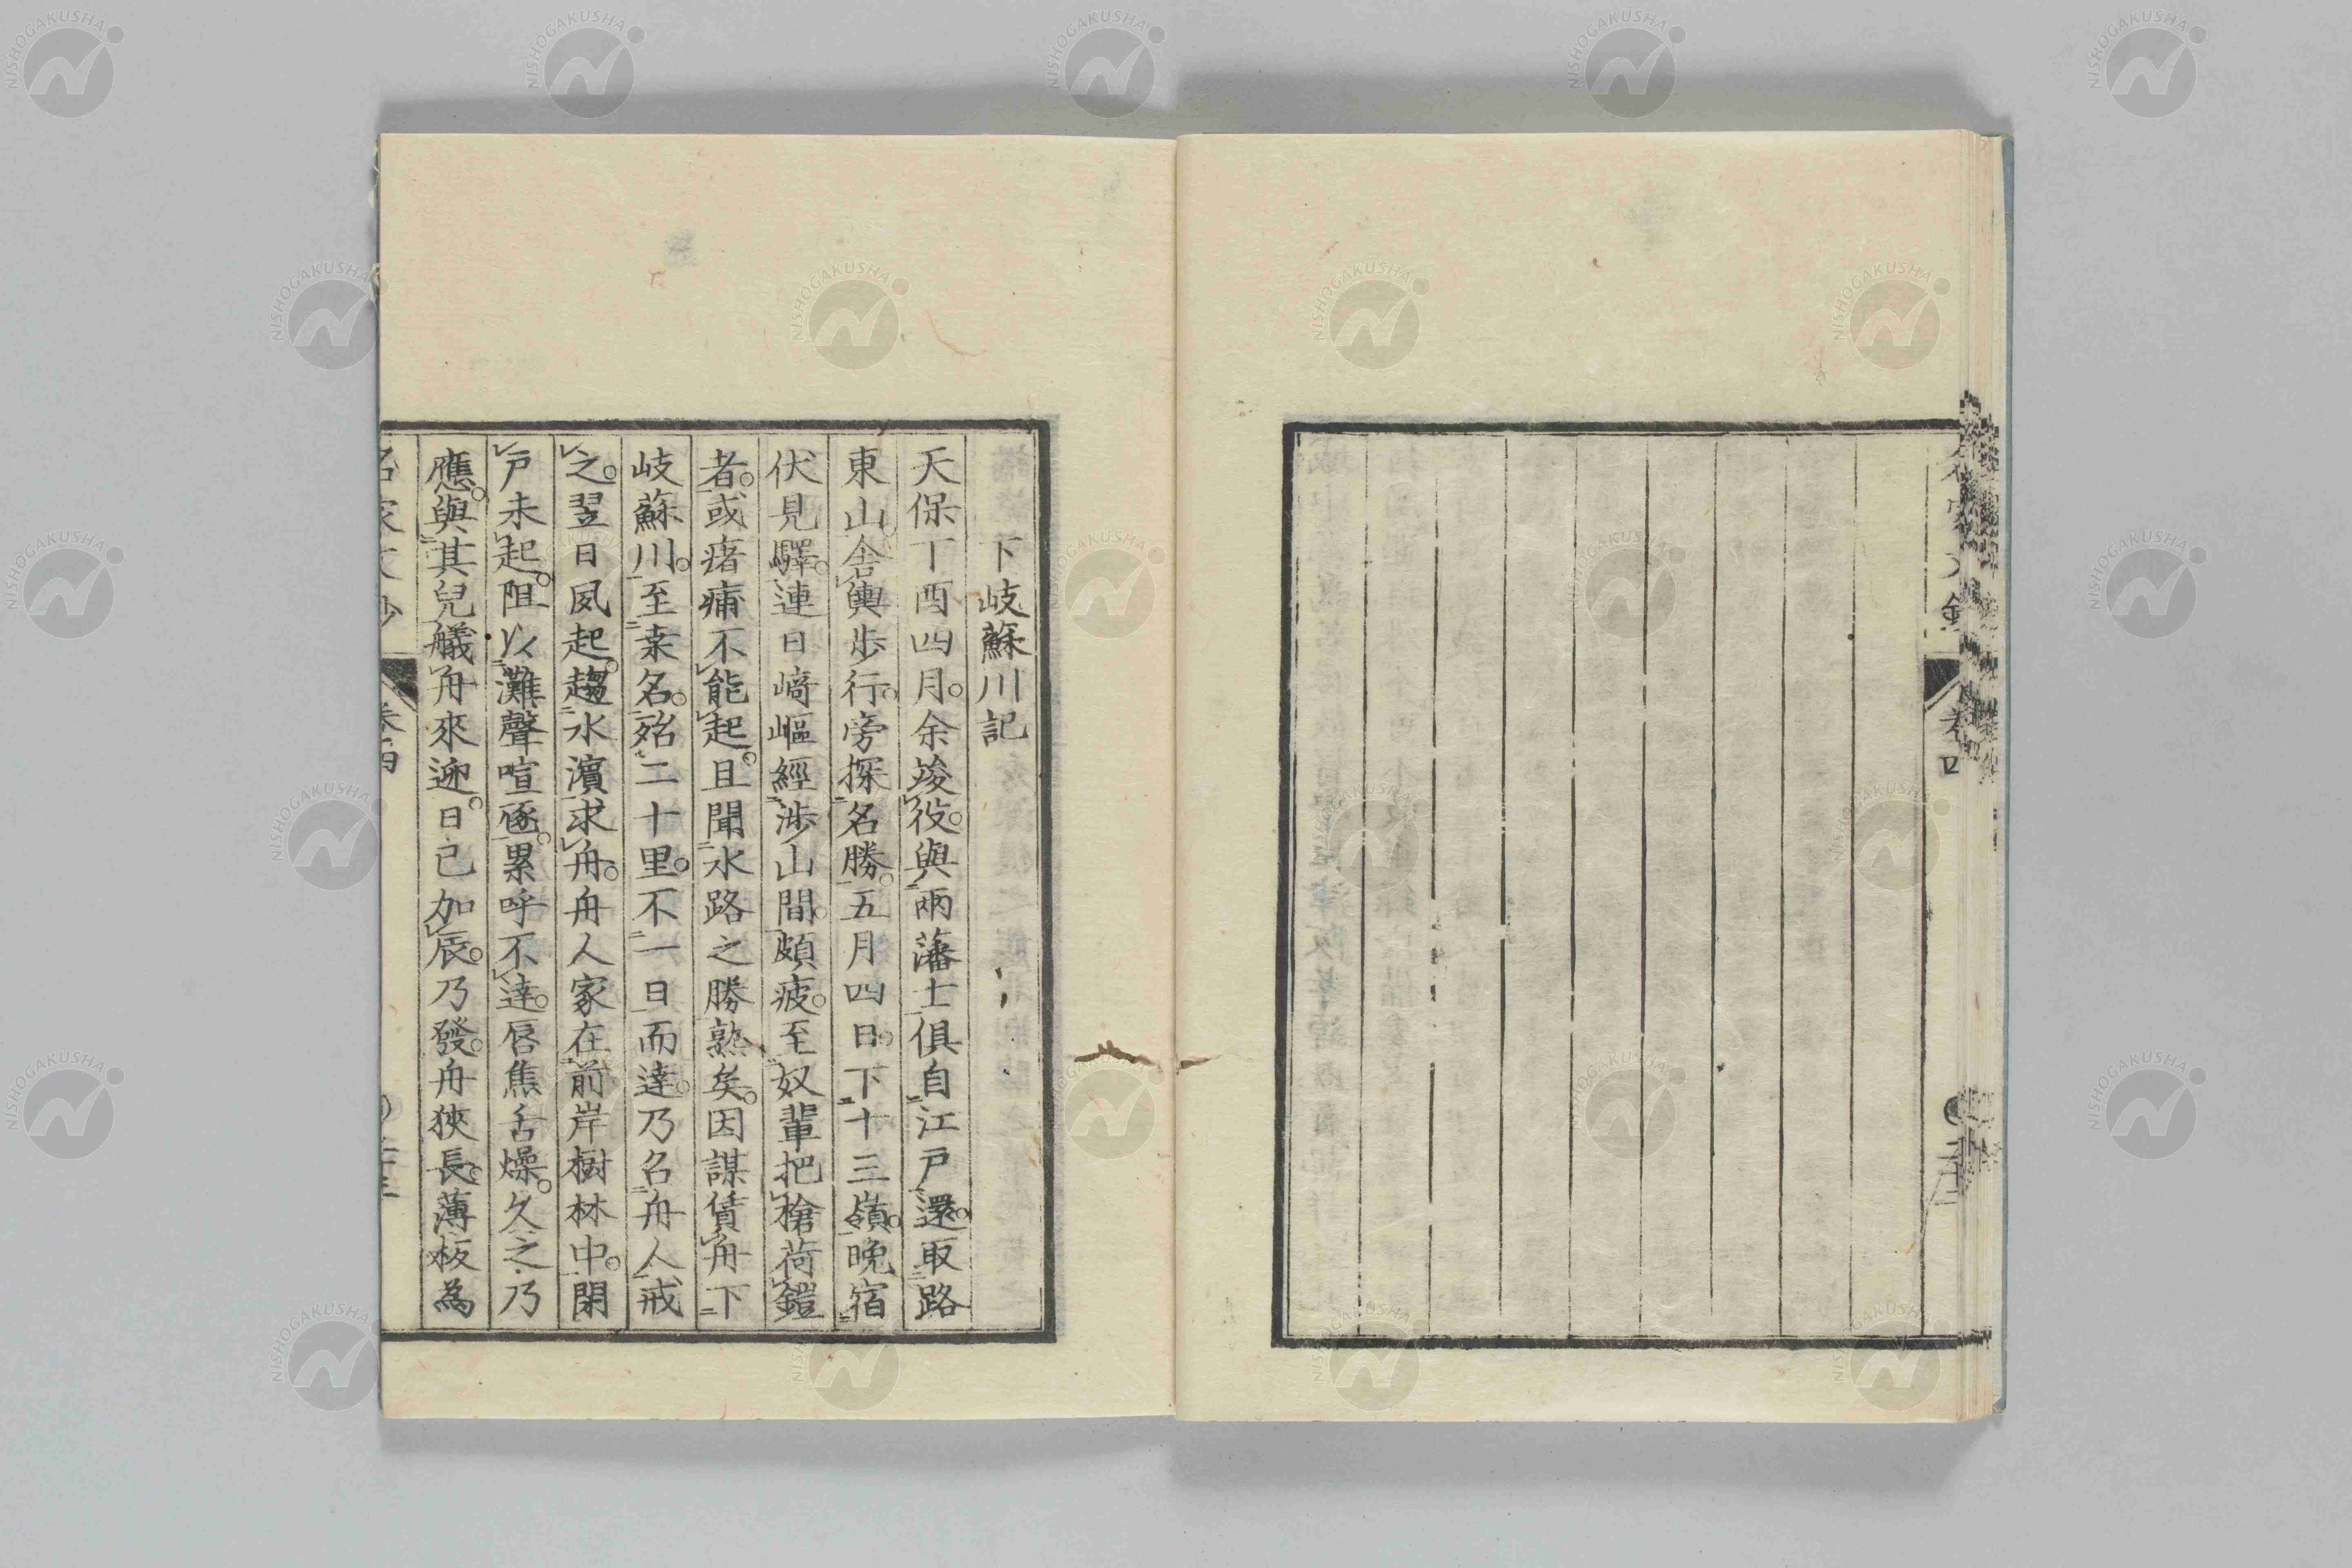 下岐蘇川記
天保丁酉四月。余竣役。與兩藩士俱自江戸還。取路
東山。舍輿歩行。旁探名勝。五月四日。下十三嶺。晩宿
伏見驛。連日﨑嶇。經渉山間。頗疲。至奴輩把槍荷鎧
者。或瘏痡不能起。且聞水路之勝熟矣。因謀賃舟下
岐蘇川。至桒名。殆二十里。不一日而達。乃名舟人戒
之。翌日夙起。趨水濵求舟。舟人家在前岸樹林中。閉
戸未起。阻以灘聲喧豗。累呼不達。唇焦舌燥。久之乃
應。與其兒艤舟來迎。日已加辰。乃發。舟狹長。薄板為
卷四
卷四
NISHOGAKUSHA